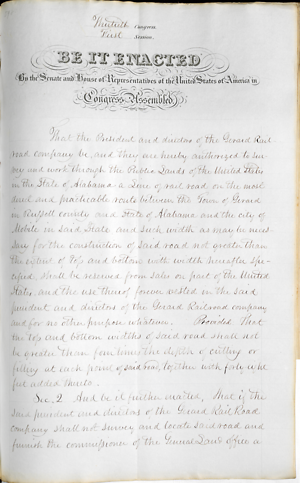 Thirtieth Congress.
First Session.
BE IT ENACTED
By the Senate and House of Representatives of the United States of America in
Congress Assembled,
That the President and directors of the Gerard Rail
road company be and they are hereby authorized to sur
vey and work through the Public Lands of the United States
in the State of Alabama a line of rail road on the most
direct and practicable route between the Town of Gerard
in Russell county and State of Alabama and the city of
Mobile in said State and such width as may be neces
sary for the construction of said road not greater than
the extent of top and bottom width hereafter spe
cified, shall be reserved from sale on part of the United
States, and the use thereof forever vested in the said
president and directors of the Gerard Railroad company
and for no other purpose whatever. Provided That
the top and bottom widths of said road shall not
be greater than four times the depth of cutting or
filling at each point of said road, together with forty
feet added thereto.
Sec. 2 And be it further enacted, That if the
said president and directors of the Gerard Rail Road
company shall not survey and locate said road and
furnish the commissioner of the General Land office a